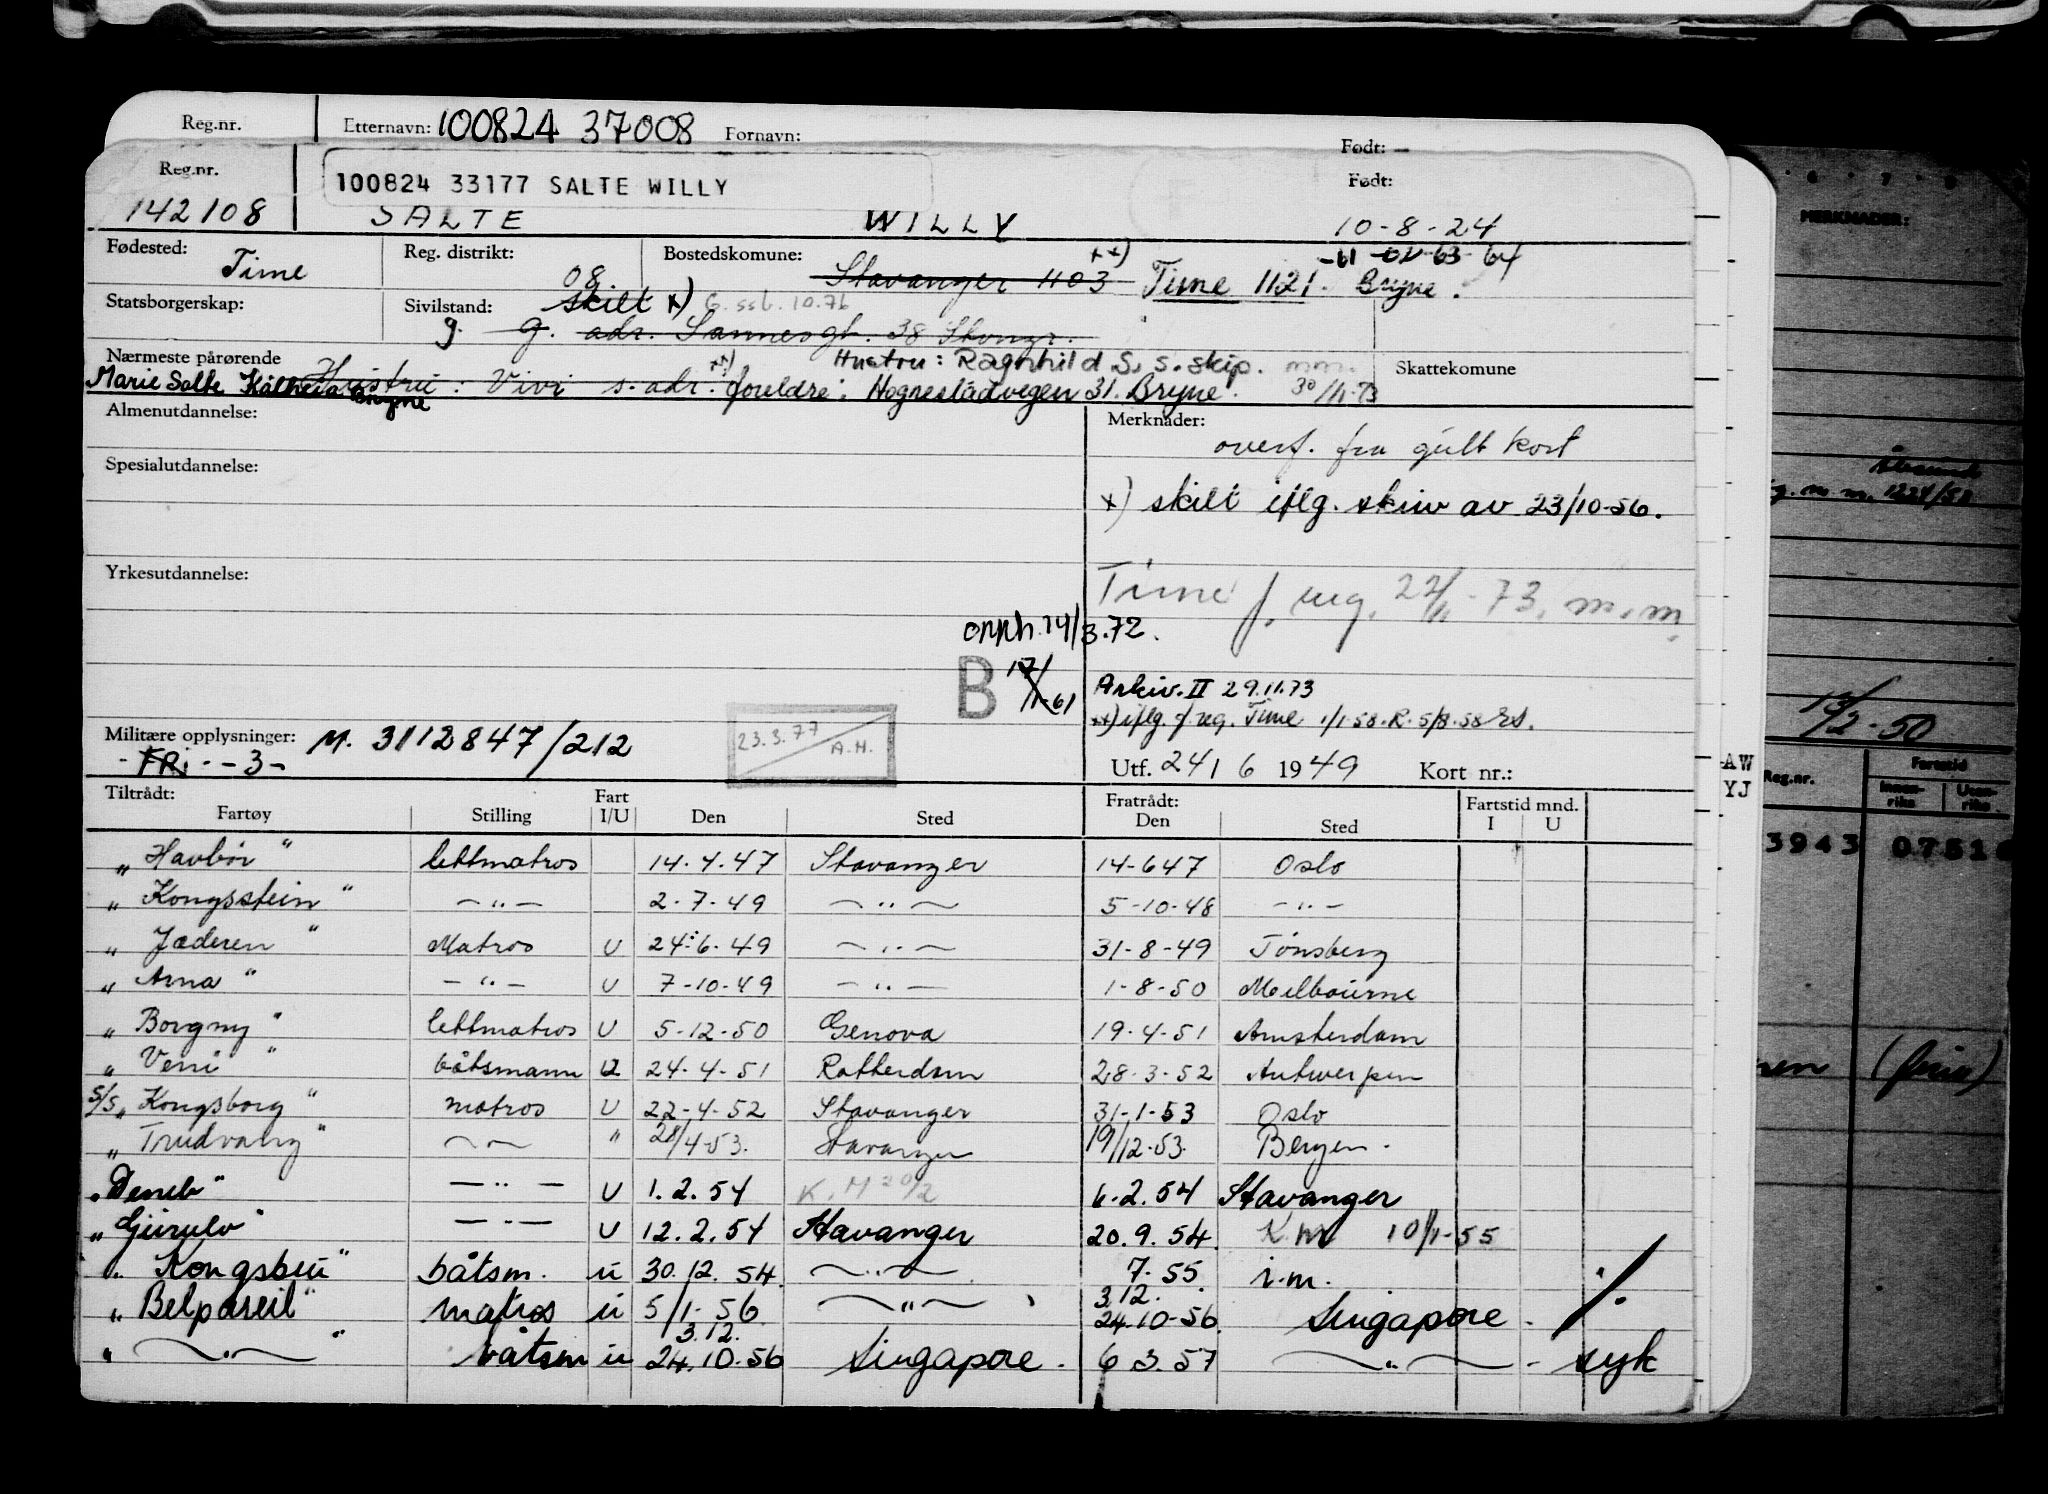 Reg.nr. Etternavn: 100824 37008 Fornavn: Født: –
Reg.nr. 100824 33177 SALTE WILLY Født:
142108 SALTE WILLY 10-8-24
-61 -02-63-64
Fødested: Time Reg. distrikt: 08 Bostedskommune: Stavanger 1103 xx) Time 1121. Bryne.
Statsborgerskap: Sivilstand: skilt x) G. ssb. 10.76
g. g. adr. Sannesgt. 38 Stvngr.
Nærmeste pårørende Hustru: Ragnhild S. s. skip. m.m. Skattekomune
Marie Salte Hustru: Vivi s. adr. xx) foreldre: Hognestadvegen 31. Bryne. 30/11-73
Bryne
Almenutdannelse: Merknader:
overf. fra gult kort
Spesialutdannelse:
x) skilt iflg. skriv av 23/10-56.
Yrkesutdannelse:
Time f. reg. 22/11-73. m.m.
opph. 14/3.72.
B 17/1-61
Arkiv. II 29.11.73
xx) iflg. f reg. Time 1/1-58. R. 5/8-58
Militære opplysninger: M. 3112847/212 23.3.77 A.H.
- FRi - -3-
Utf. 24/6 1949 Kort nr.:
Tiltrådt: Fart Fratrådt: Fartstid mnd.
Fartøy Stilling I/U Den Sted Den Sted I U
„Havbør" lettmatros 14.4.47 Stavanger 14-647 Oslo
„Kongsstein" —"— 2-7-49 —"— 5-10-48 —"—
„Jæderen" Matros U 24-6-49 —"— 31-8-49 Tønsberg
„Arna" —"— U 7-10-49 —"— 1-8-50 Melbourne
„Borgny" lettmatros U 5-12-50 Genova 19-4-51 Amsterdam
„Veni" båtsmann U 24-4-51 Rotterdam 28-3-52 Antwerpen
S/S „Kongsborg" matros U 22-4-52 Stavanger 31-1-53 Oslo
„Trudvang" —"— " 28/4-53. Stavanger 19/12-53. Bergen.
„Deneb" —"— U 1.2.54 K.M 20/2 6.2.54 Stavanger
„Gjerulv" —"— U 12.2.54 Stavanger 20.9.54. K.m 10/1-55
„Kongsbeu" båtsm. u 30.12.54. —"— 7-55. i.m.
3.12.
„Belpareil" matros u 5/1-56 —"— 24.10-56. Singapore. ./.
3.12.
„ —"— " båtsm u 24.10-56 Singapore. 6 3.57 —"— - syk
MERKNADER:
Ålesund
m. 1224/51
13/2-50
AW
YJ
Reg.nr. Fartstid
Innen-riks Uten-riks
3943 0751